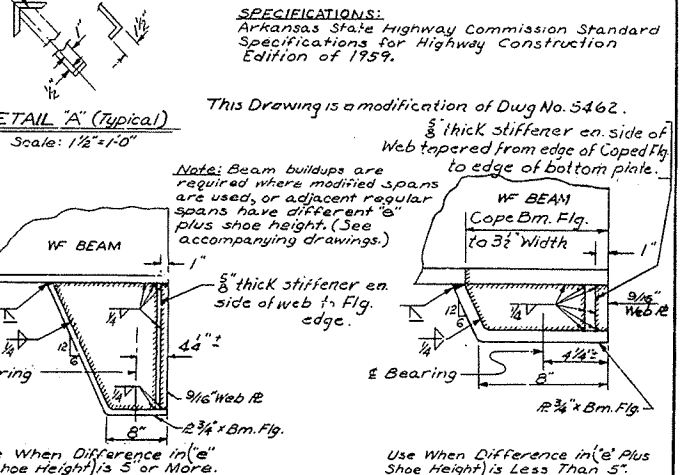 SPECIFICATIONS:
Arkansas State Highway Commission Standard
Specifications for Highway Construction
Edition of 1959.
1"
1½"
1½"
ETAIL "A" (Typical)
Scale: 1½"=1'-0"
This Drawing is a modification of Dwg No. 5462.
⅝" thick stiffener ea. side of
Web tapered from edge of Coped Flg.
to edge of bottom plate.
Note: Beam buildups are
required where modified spans
are used, or adjacent regular
spans have different "e"
plus shoe height. (See
accompanying drawings.)
WF BEAM
1"
⅝" thick stiffener ea.
side of web to Flg.
edge.
¼
12
6
¼
4¼"±
ring
¼
9/16" Web PL
8"
PL ¾" x Bm. Flg.
e When Difference in ("e"
hoe Height) is 5" or More.
WF BEAM
Cope Bm. Flg.
to 3½" Width
1"
9/16"
Web PL
¼
12
6
¼
4¼"±
℄ Bearing
8"
PL ¾" x Bm. Flg.
Use When Difference in ("e" Plus
Shoe Height) is Less Than 5".